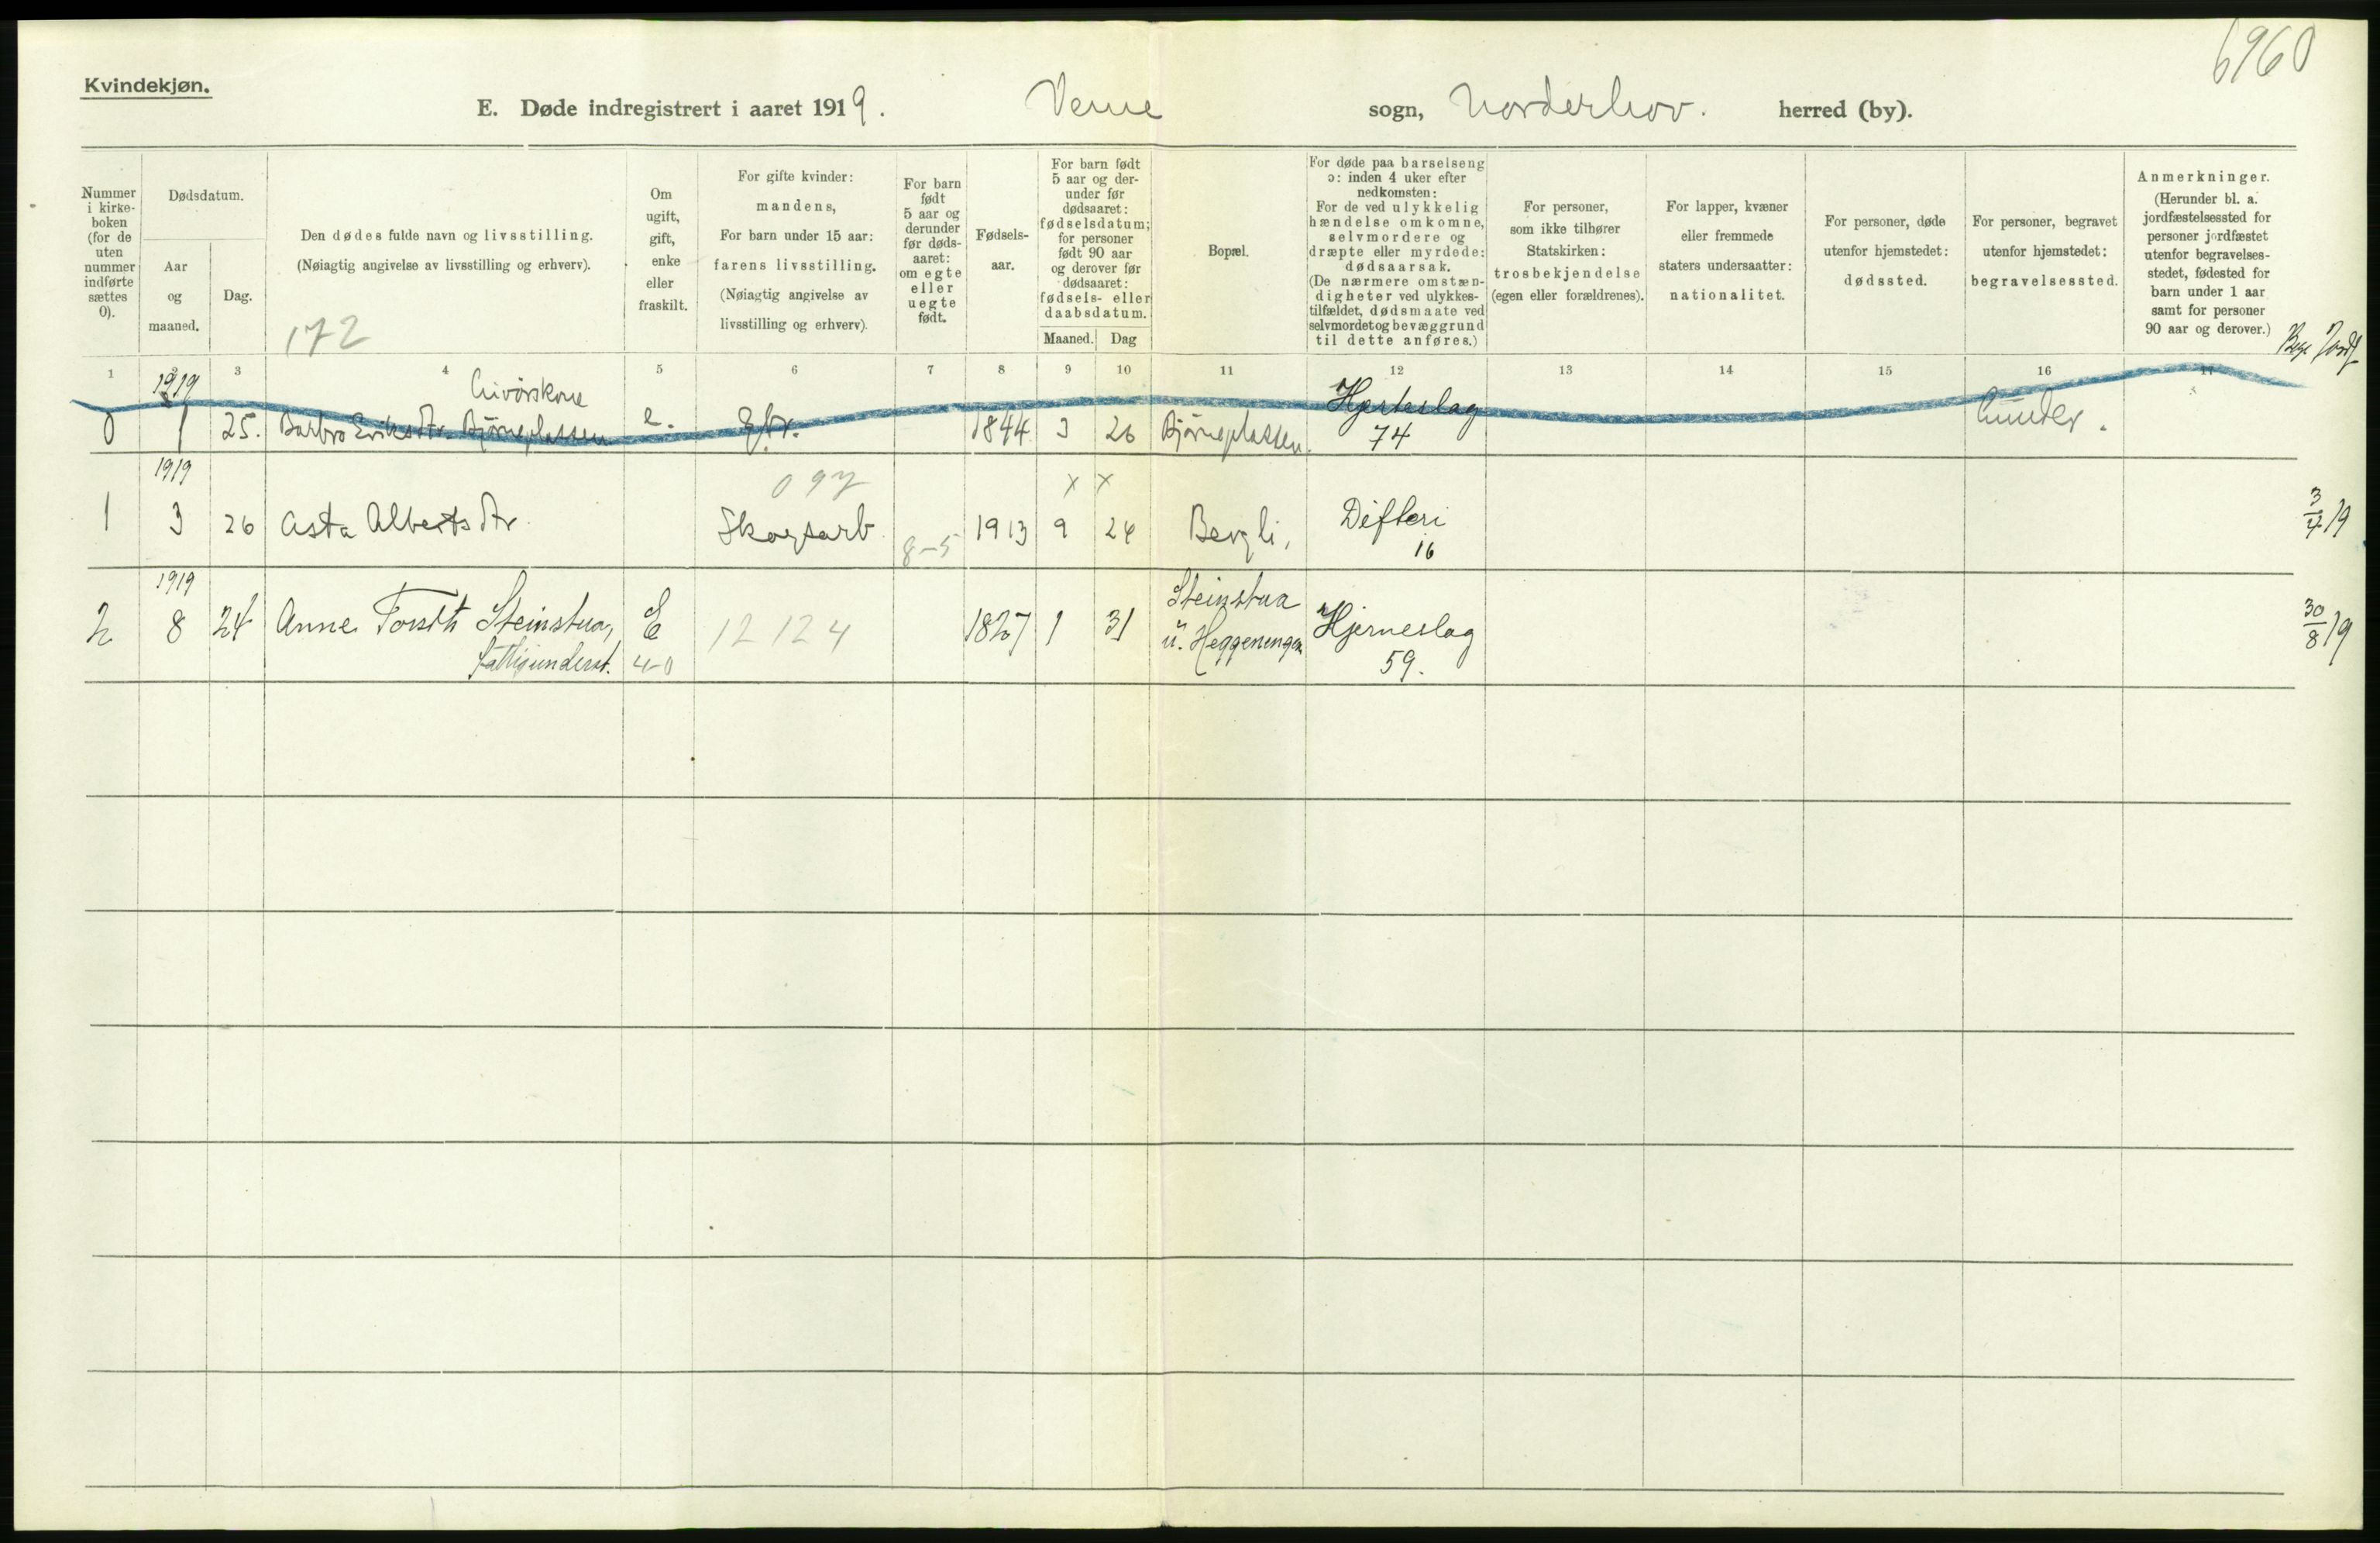 6960
Kvindekjøn.
E. Døde indregistrert i aaret 1919. Veme sogn, Norderhov. herred (by).
Nummer i kirkeboken (for de uten nummer indførte sættes 0).
Dødsdatum.
Aar og maaned.
Dag.
Den dødes fulde navn og livsstilling.
(Nøiagtig angivelse av livsstilling og erhverv).
172
Om ugift, gift, enke eller fraskilt.
For gifte kvinder:
mandens,
For barn under 15 aar:
farens livsstilling.
(Nøiagtig angivelse av
livsstilling og erhverv).
For barn født 5 aar og derunder før dødsaaret: om egte eller uegte født.
Fødselsaar.
For barn født 5 aar og derunder før dødsaaret: fødselsdatum; for personer født 90 aar og derover før dødsaaret: fødsels- eller daabsdatum.
Maaned. Dag
Bopæl.
For døde paa barselseng ɔ: inden 4 uker efter nedkomsten:
For de ved ulykkelig hændelse omkomne, selvmordere og dræpte eller myrdede: dødsaarsak.
(De nærmere omstændigheter ved ulykkestilfældet, dødsmaate ved selvmord et og bevæggrund til dette anføres.)
For personer,
som ikke tilhører
Statskirken:
trosbekjendelse
(egen eller forældrenes).
For lapper, kvæner
eller fremmede
staters undersaatter:
nationalitet.
For personer, døde
utenfor hjemstedet:
dødssted.
For personer, begravet
utenfor hjemstedet:
begravelsessted.
Anmerkninger.
(Herunder bl. a. jordfæstelsessted for personer jordfæstet utenfor begravelsesstedet, fødested for barn under 1 aar samt for personer 90 aar og derover.)
1 2 3 4 5 6 7 8 9 10 11 12 13 14 15 16 17
1919
0 1 25. Barbro Eriksdtr. Bjørneplassen e. 1844 3 26 Bjørneplassen. Hjerteslag
74
1919
097 x x
1 3 26 Asta Albertsdtr Skogsarb. 8-5 1913 9 24 Bergli, Difteri 3/4 19
16
1919
2 8 24 Anne Torsdtr Steinstua, E 12124 1827 1 31 Steinstua Hjerneslag 30/8 19
fattigunderst. 4-0 u. Heggeningen 59.